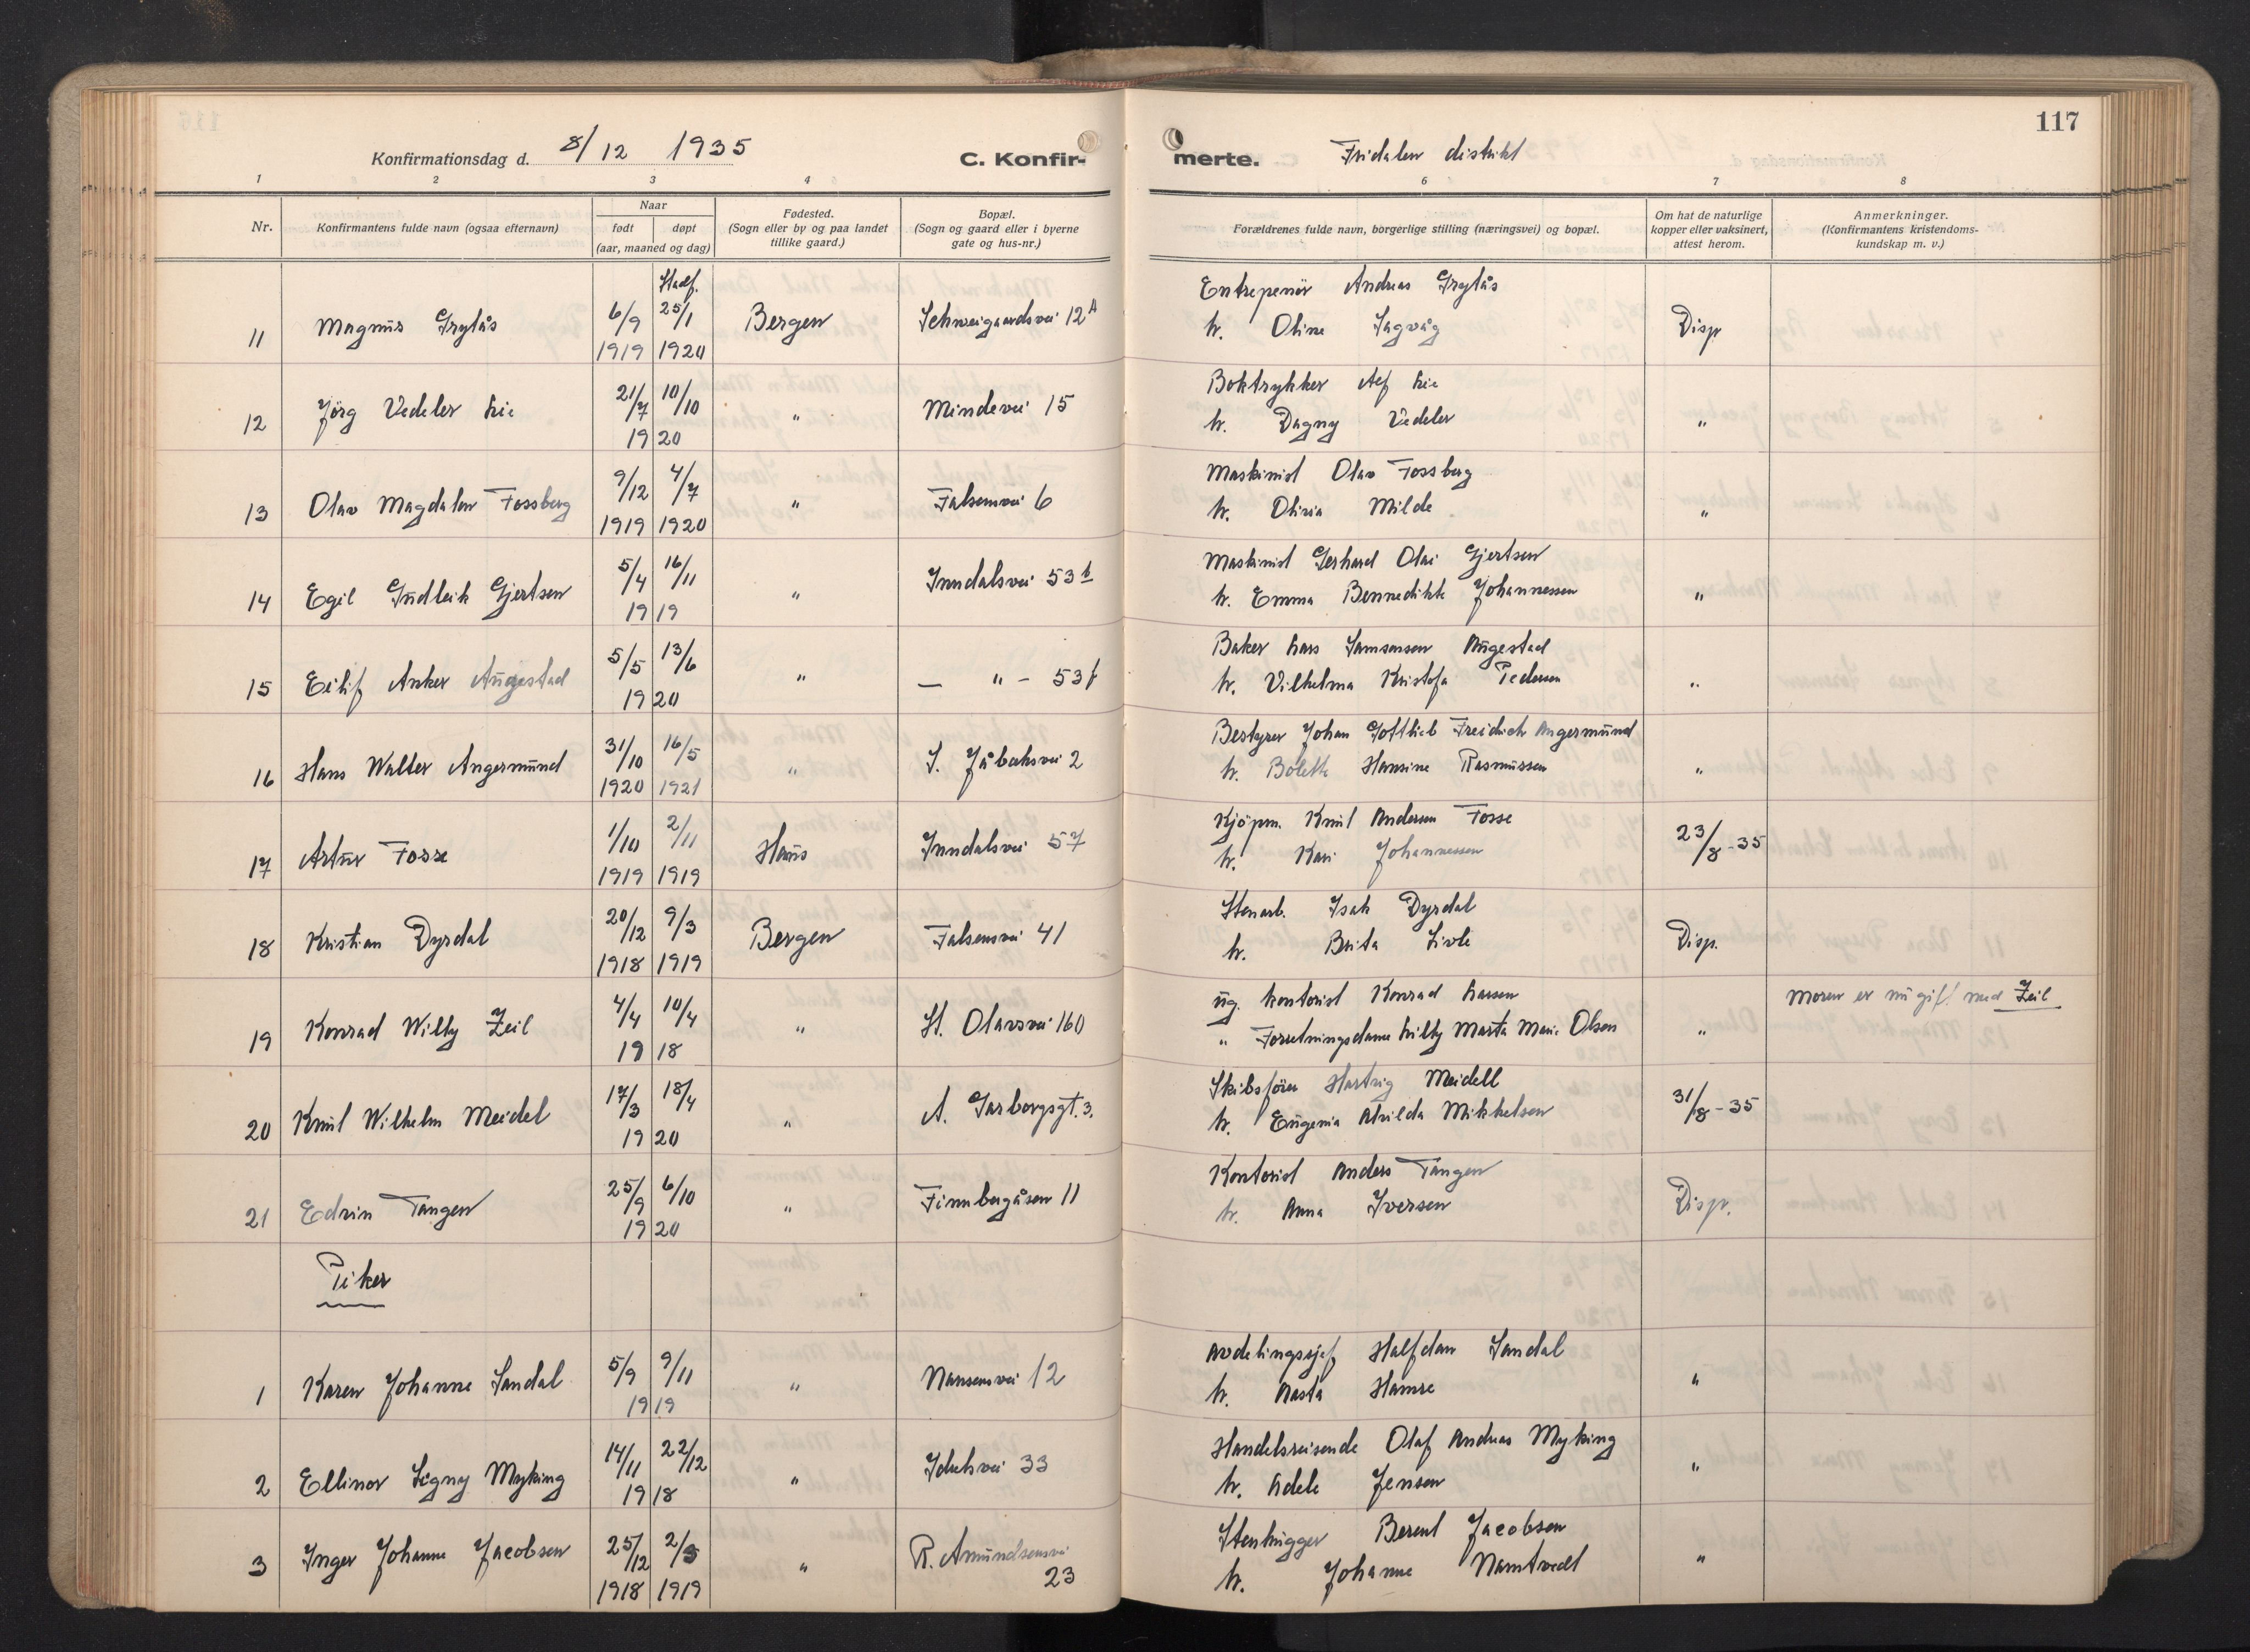 117
Konfirmationsdag d. 8/12 1935 C. Konfir- merte. Fridalen distrikt
1 2 3 4 6 7 8
Nr. Konfirmantens fulde navn (ogsaa efternavn) Naar født døpt (aar, maaned og dag) Fødested. (Sogn eller by og paa landet tillike gaard.) Bopæl. (Sogn og gaard eller i byerne gate og hus-nr.) Forældrenes fulde navn, borgerlige stilling (næringsvei) og bopæl. Om hat de naturlige kopper eller vaksinert, attest herom. Anmerkninger. (Konfirmantens kristendoms-kundskap m. v.)
Entrepenör Andreas Grytås
11 Magnus Grytås 6/9 1919 25/1 1920 Bergen Schweigaardsvei 12A
h. Oline Sagvåg Disp
Boktrykker Alf Lie
12 Jörg Vedeler Lie 21/7 10/10 1920 " Mindevei 15
h. Dagny Vedeler "
Maskinist Olav Fossberg
13 Olav Magdalon Fossberg 9/12 1919 4/7 1920 " Falsensvei 6
h. Olivia Milde "
Maskinist Gerhard Olai Gjertsen
14 Egil Gudleik Gjertsen 5/4 16/11 1919 " Inndalsvei 53b
h. Emma Bennedikte Johannessen "
Baker Lars Samsonsen Augestad
15 Eilif Anker Augestad 5/5 13/6 1920 " — " — 53
h. Vilhelma Kristofa Pedersen "
Bestyrer Johan Gottlieb Freidich Angermund
16 Hans Walter Angermund 31/10 1920 16/5 1921 " S. Jåbæksvei 2
h. Bolette Hansine Rasmussen "
Kjöpm. Knut Andersen Fosse
17 Artur Fosse 1/10 1919 2/11 1919 Haus Inndalsvei 57
h. Kari Johannessen 23/8-35
Stenarb. Isak Dyrdal
18 Kristian Dyrdal 20/12 1918 9/3 1919 Bergen Falsensvei 41
h. Brita Livle Disp.
ug. kontorist Konrad Larsen
19 Konrad Willy Zeil 4/4 10/4 1918 " St. Olavsvei 160
" Forretningsdame Lilly Marta Marie Olsen " Moren er nu gift med Zeil
Skibsförer Hartvig Meidell
20 Knut Wilhelm Meidel 17/3 18/4 1920 " A. Garborgsgt. 3.
h. Eugenia Alvilda Mikkelsen 31/8-35
Kontorist Anders Tangen
21 Edvin Tangen 25/9 6/10 1920 " Finnbergåsen 11
h. Anna Iversen Disp.
Piker
Avdelingssjef Halfdan Sandal
1 Karen Johanne Sandal 5/9 9/11 1919 " Nansensvei 12
h. Aasta Hamre "
Handelsreisende Olaf Andreas Myking
2 Ellinor Signy Myking 14/11 22/12 1918 " Ibsensvei 33
h. Adele Jensen "
Stenhugger Berent Jacobsen
3 Inger Johanne Jacobsen 25/12 1918 2/3 1919 " R. Amundsensvei 23
h. Johanne Namtvedt "